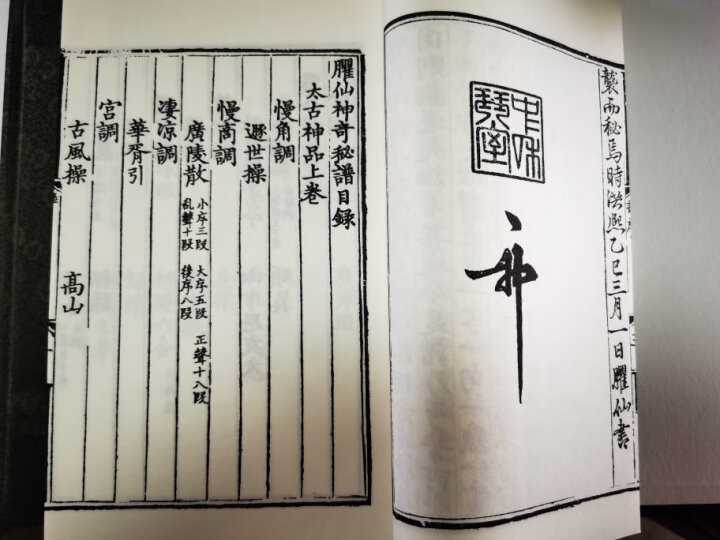 襲而秘焉時洪熙乙巳三月一日臞仙書
中和
琴室
臞仙神奇秘譜目錄
太古神品上卷
慢角調
遯世操
慢商調
廣陵散 小序三段 大序五段 正聲十八段
乱聲十段 後序八段
淒涼調
華胥引
宮調
古風操 高山